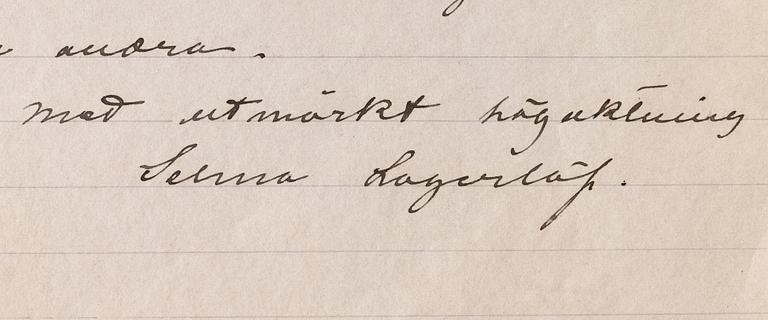 andra.
Med utmärkt högaktning
Selma Lagerlöf.